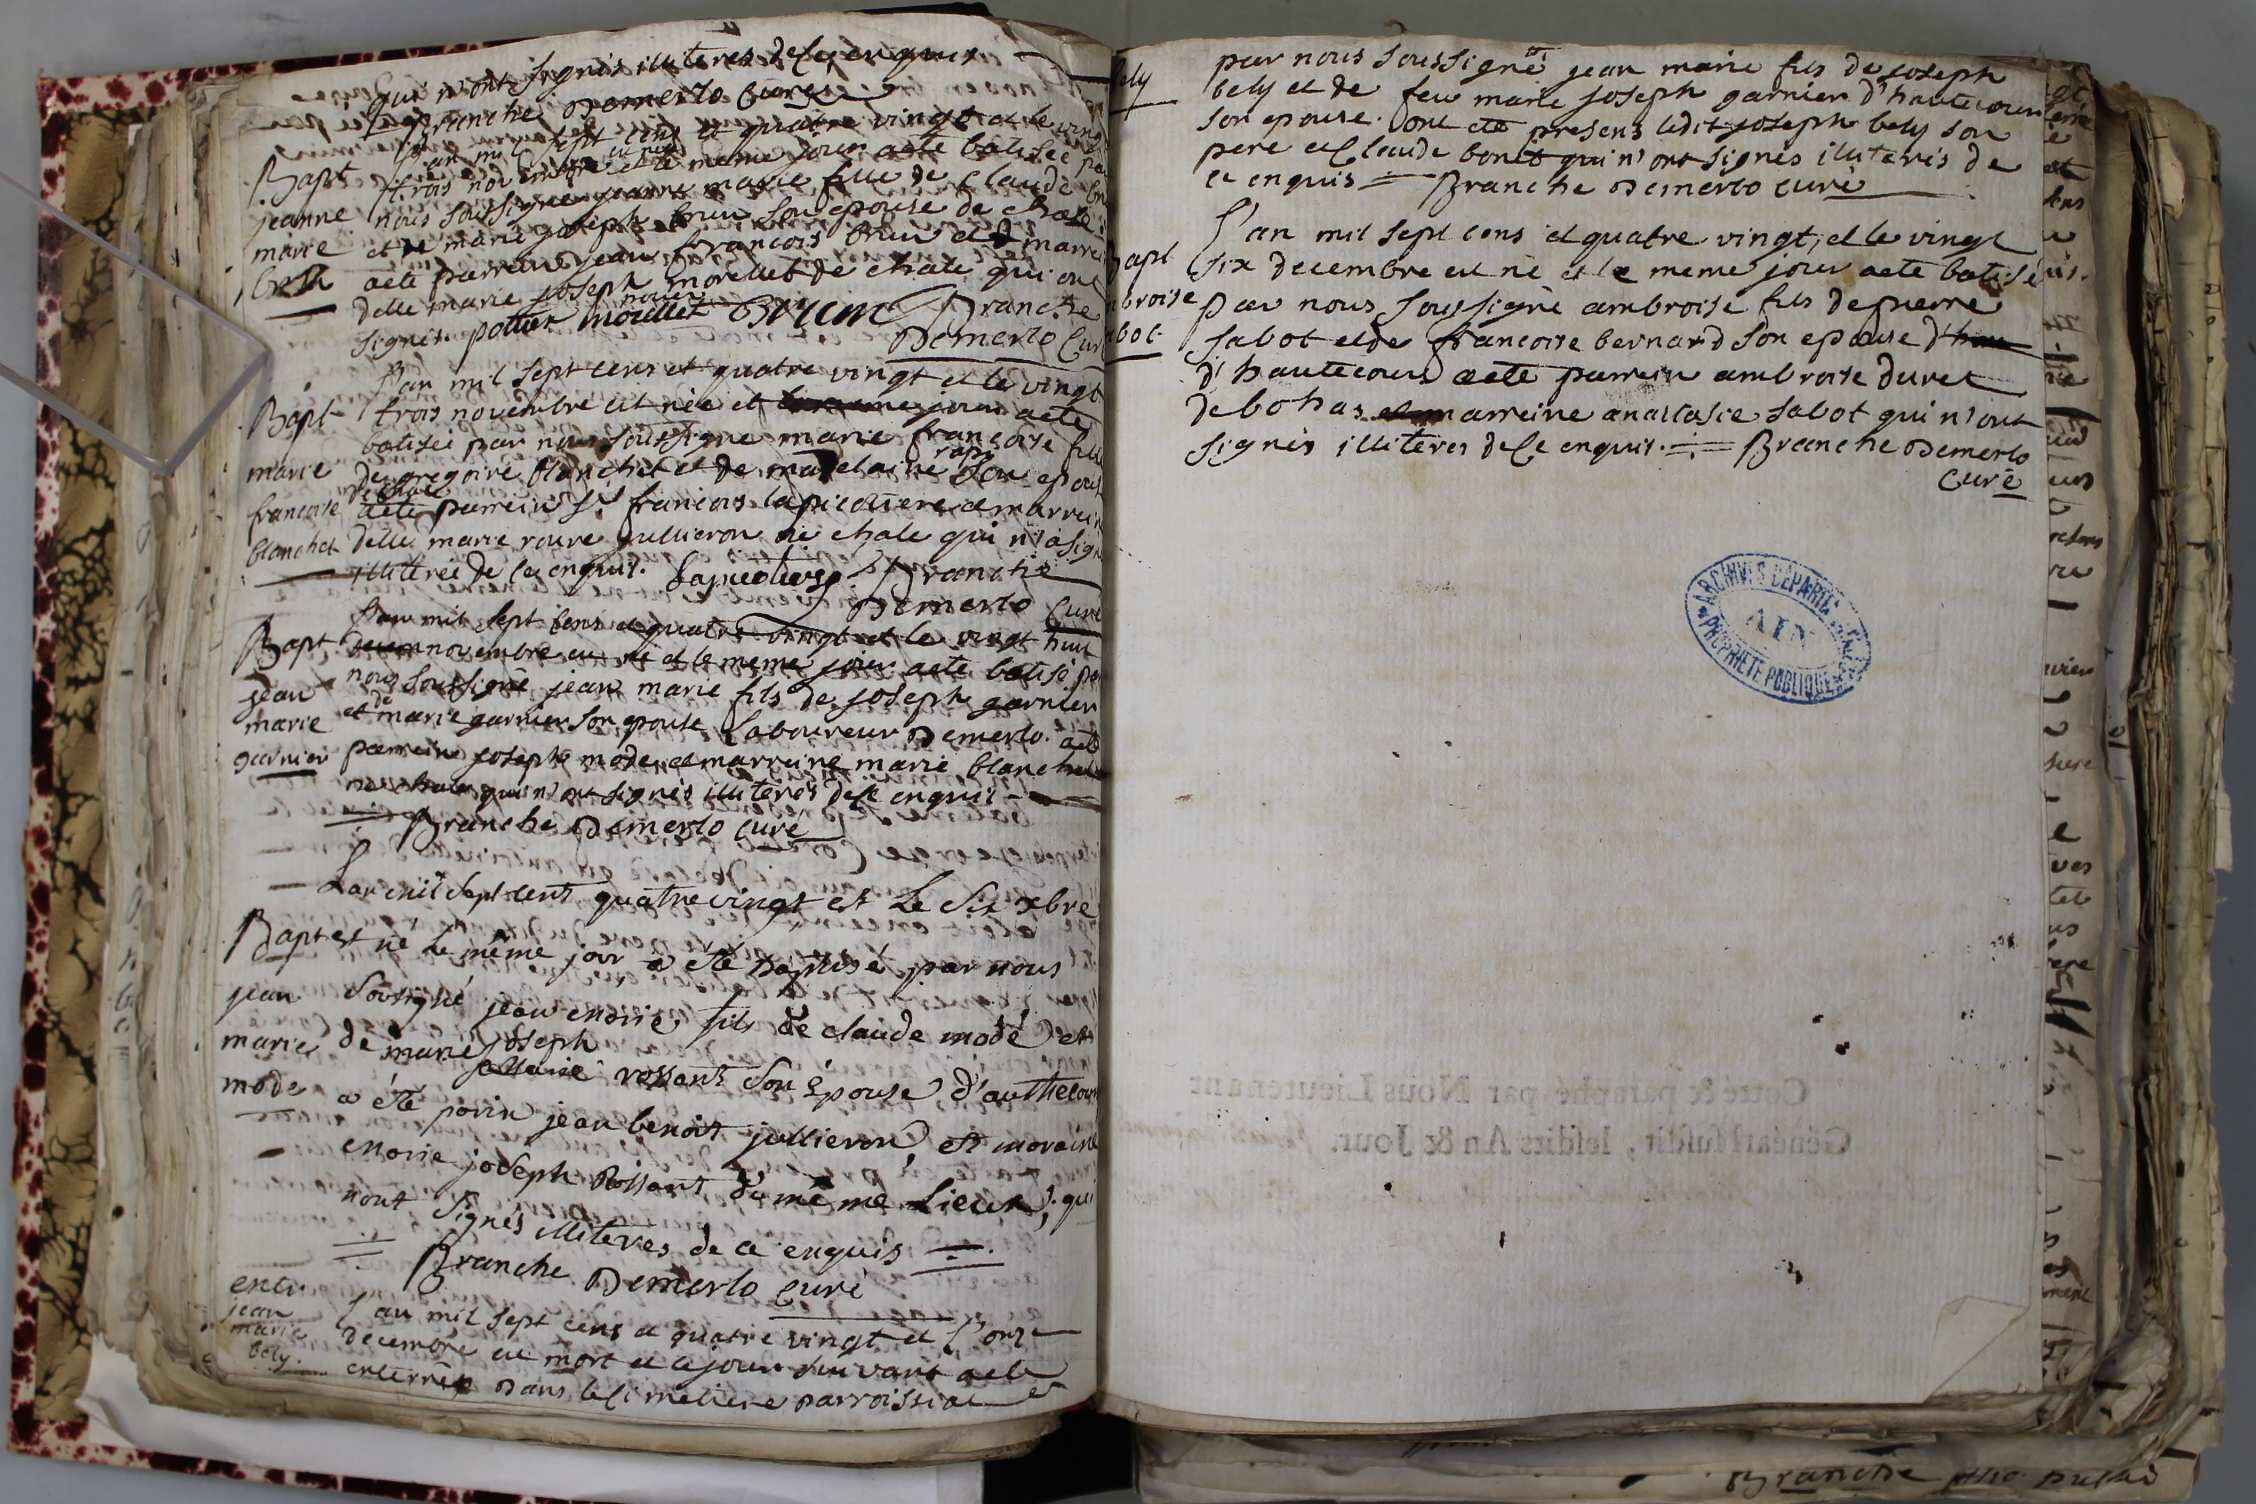 qui n'ont signés illiteres de ce enquis
Branche Demerlo Curé
L'an mil sept cens et quatre vingt et le vingt
Bapt
jeanne
marie
brun
trois novembre est née et le meme jour a eté batisée par
nous soussigné jeanne marie fille de Claude brun
et de marie joseph brun son epouse de chale
a eté parrein jean francois brun et marreine
delle marie joseph morellet de chale qui ont
signés. pottier morellet Brun Branche
Demerlo Curé
L'an mil sept cens et quatre vingt et le vingt
Bapt
marie
francoise
blanchet
trois novembre est née et le meme jour a eté
batisée par nous soussigné marie francoise fille
de gregoire blanchet et de madelaine son epouse
de chale
a eté parrein sr. francois lapicotiere et marreine
delle. marie jullieron de chale qui n'a signé
illiterée de ce enquis. Lapicotiere Branche
Demerlo Curé
L'an mil sept cens et quatre vingt et le vingt huit
Bapt
jean
marie
garnier
novembre est né et le meme jour a eté batisé par
nous soussigné jean marie fils de joseph garnier
et de marie garnier son epouse laboureur Demerlo. a eté
parrein joseph mode et marreine marie blanchet
de chale qui n'ont signés illiterés de ce enquis
Branche Demerlo curé
L'an mil sept cent quatre vingt et le Six xbre
Bapt
jean
marie
mode
est né le même jour a été baptisé par nous
Soussigné jean marie fils de claude modé et
de marie joseph
rossant son épouse d'authecour
a été parin jean benoit jullieron et moraine
marie joseph Rossant du même Lieux, qui
nont Signés illiteres de ce enquis
Branche Demerlo Curé
enter
jean
marie
bely.
L'an mil sept cens et quatre vingt et l'onze
decembre est mort et le jour suivant a eté
enterré dans le cimetiere parroissial
bely
par nous soussigné jean marie fils de joseph
bely et de feu marie joseph garnier d'hautecour
son epouse. ont eté presens ledit joseph bely son
pere et Claude bonet qui n'ont signés illiterés de
ce enquis Branche Demerlo Curé
L'an mil sept cens et quatre vingt, et le vingt
Bapt
ambroise
sabot
six decembre est né et le meme jour a eté batisé
par nous soussigné ambroise fils de pierre
sabot et de francoise bernard son epouse
d'hautecour a eté parrein ambroise duret
de bohas et marreine anastasie sabot qui n'ont
signés illiteres de ce enquis. Branche Demerlo
Curé
ARCHIVES DÉPARTEMENTALES
AIN
PROPRIÉTÉ PUBLIQUE
Cotté & paraphé par Nous Lieutenant
Général susdit, lesdits An & Jour.
Branche